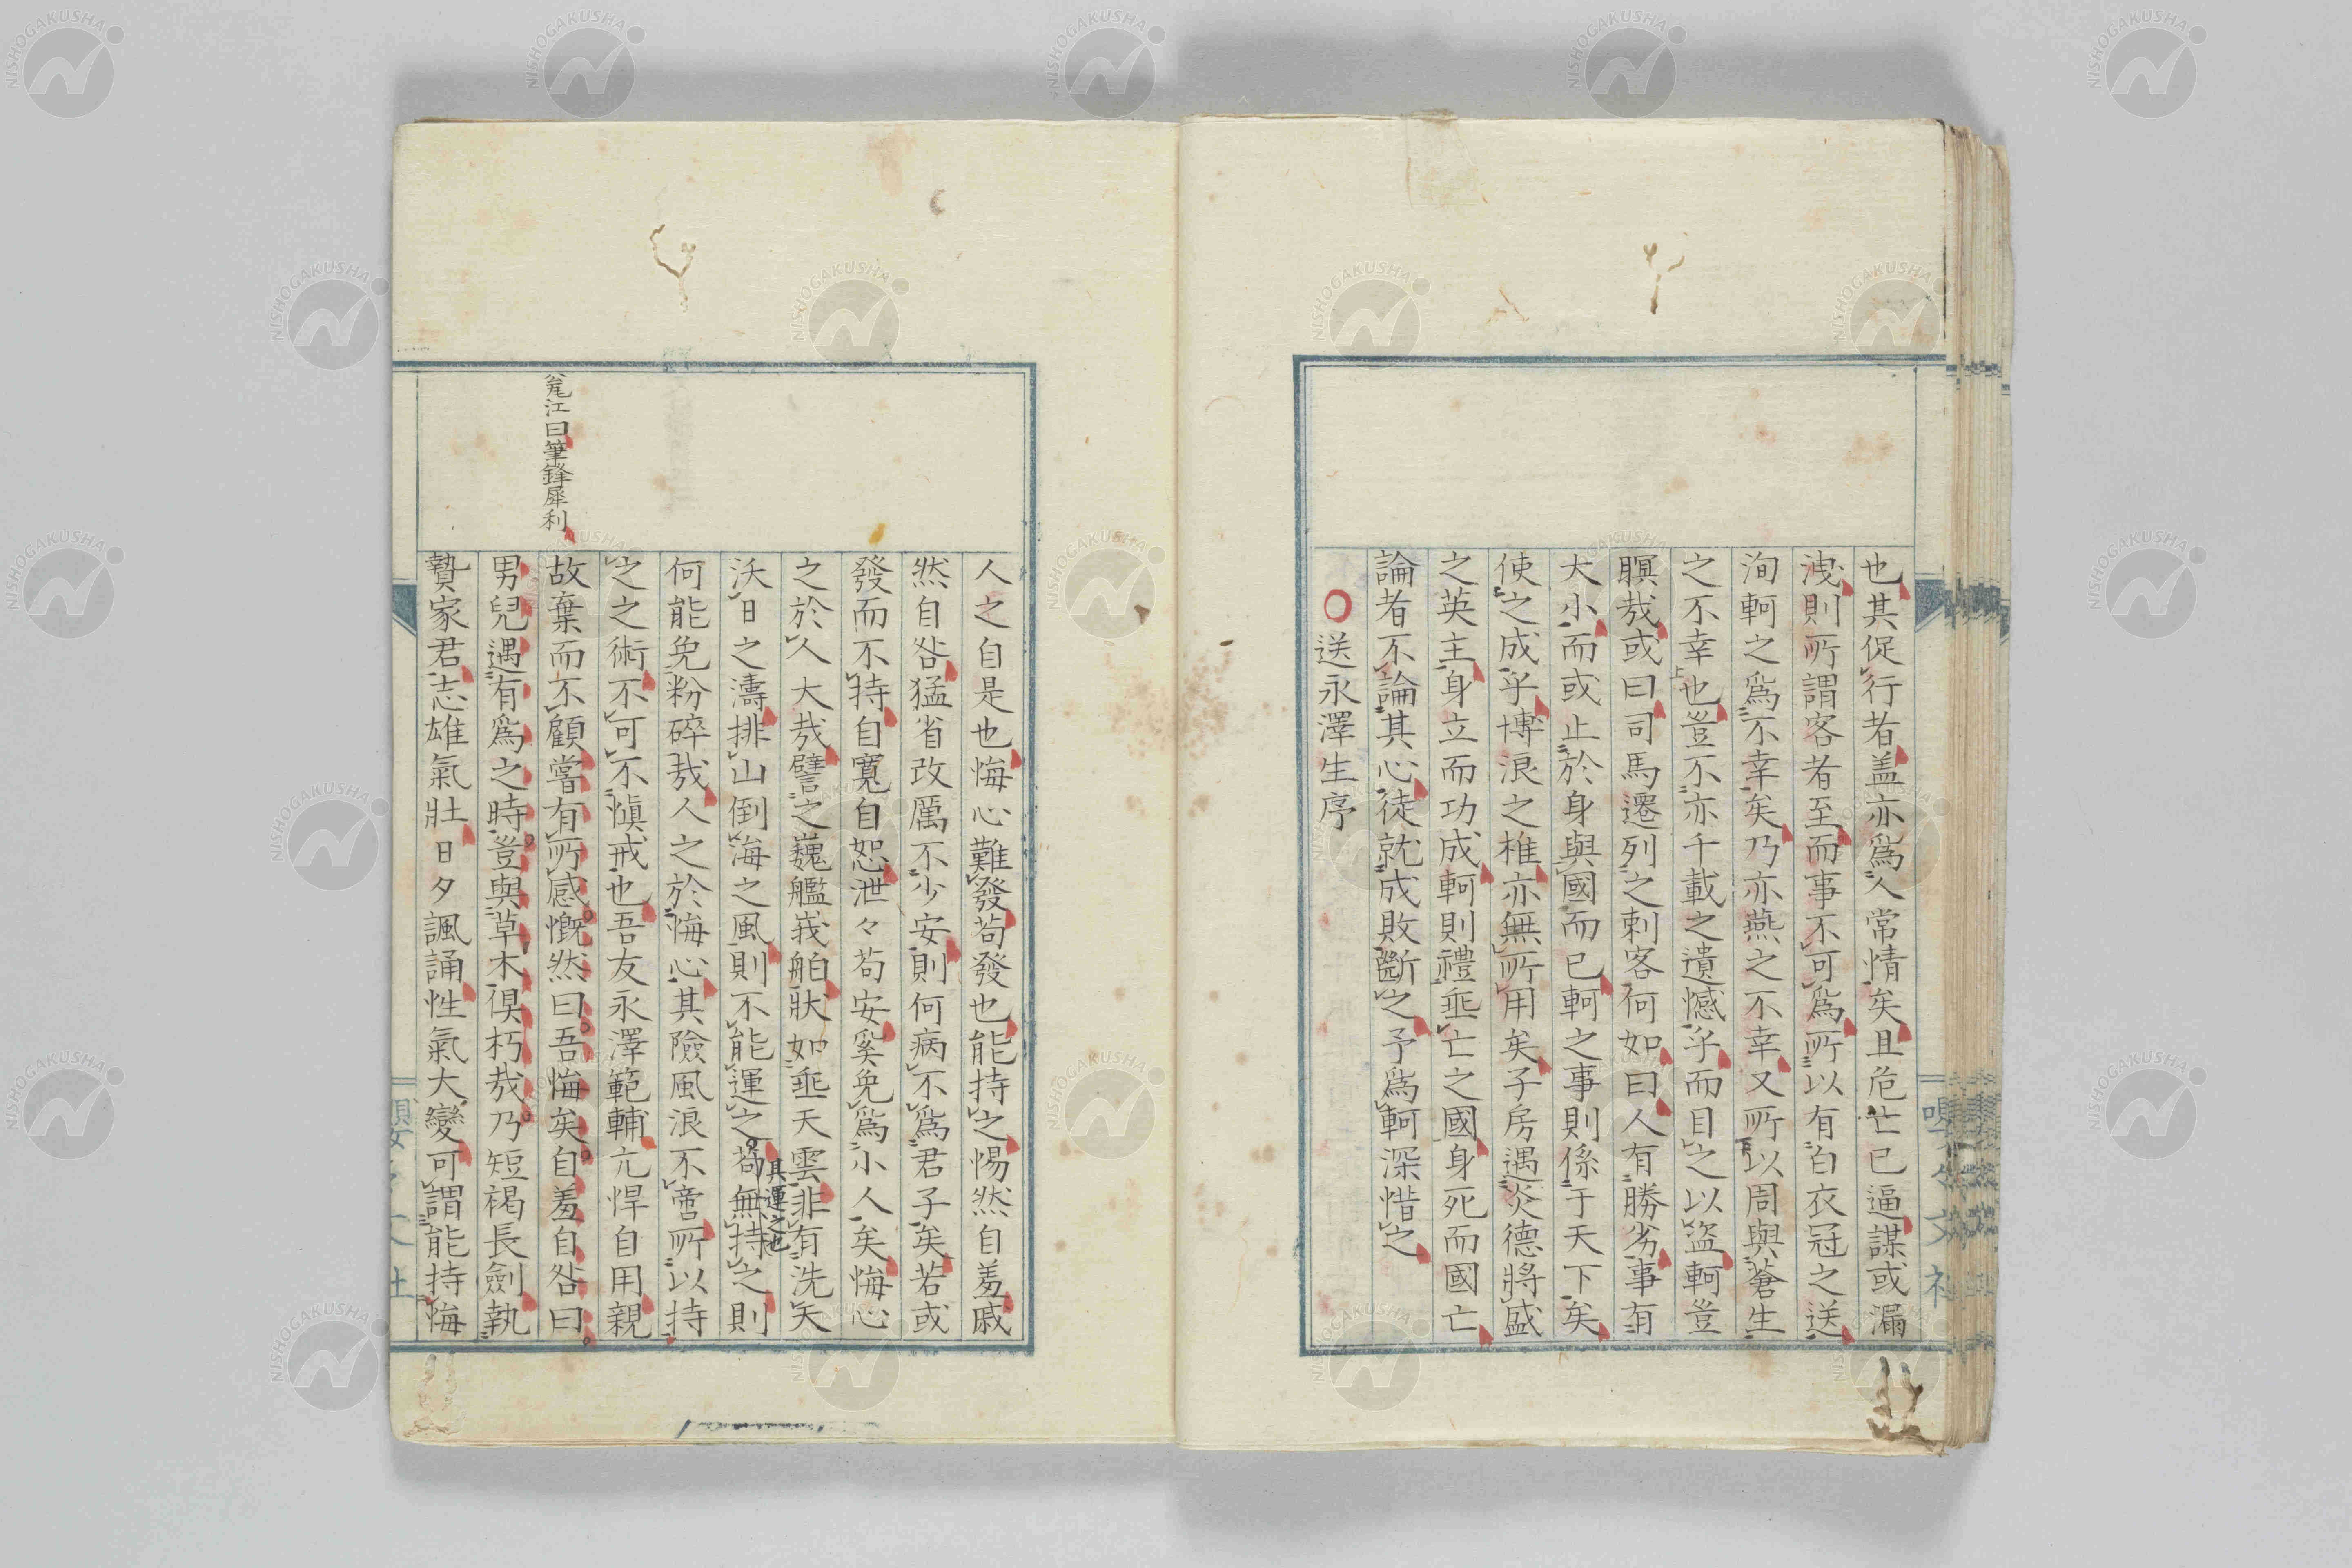 也其促行者盖亦爲人常情矣且危亡已逼謀或漏
洩則所謂客者至而事不可爲所以有白衣冠之送
洵軻之爲不幸矣乃亦燕之不幸又所以周與蒼生
之不幸也豈不亦千載之遺憾乎而目之以盜軻豈
瞑哉或曰司馬遷列之刺客何如曰人有勝劣事有
大小而或止於身與國而已軻之事則係于天下矣
使之成乎博浪之椎亦無所用矣子房遇炎德將盛
之英主身立而功成軻則禮垂亡之國身死而國亡
論者不論其心徒就成敗斷之予爲軻深惜之
○送永澤生序
人之自是也悔心難發苟發也能持之惕然自羞戚
然自咎猛省改厲不少安則何病不爲君子矣若或
發而不持自寬自恕泄々苟安奚免爲小人矣悔心
之於人大哉譬之巍艦峩舶狀如垂天雲非有洗天
沃日之濤排山倒海之風則不能運之苟無持之則
其運之也
何能免粉碎哉人之於悔心其險風浪不啻所以持
之之術不可不愼戒也吾友永澤範輔亢悍自用親
故棄而不顧嘗有所感慨然曰吾悔矣自羞自咎曰
男兒遇有爲之時豈與草木俱朽哉乃短褐長劍執
贄家君志雄氣壯日夕諷誦性氣大變可謂能持悔
翁尾江曰筆鋒犀利
嚶々文社
NISHOGAKUSHA